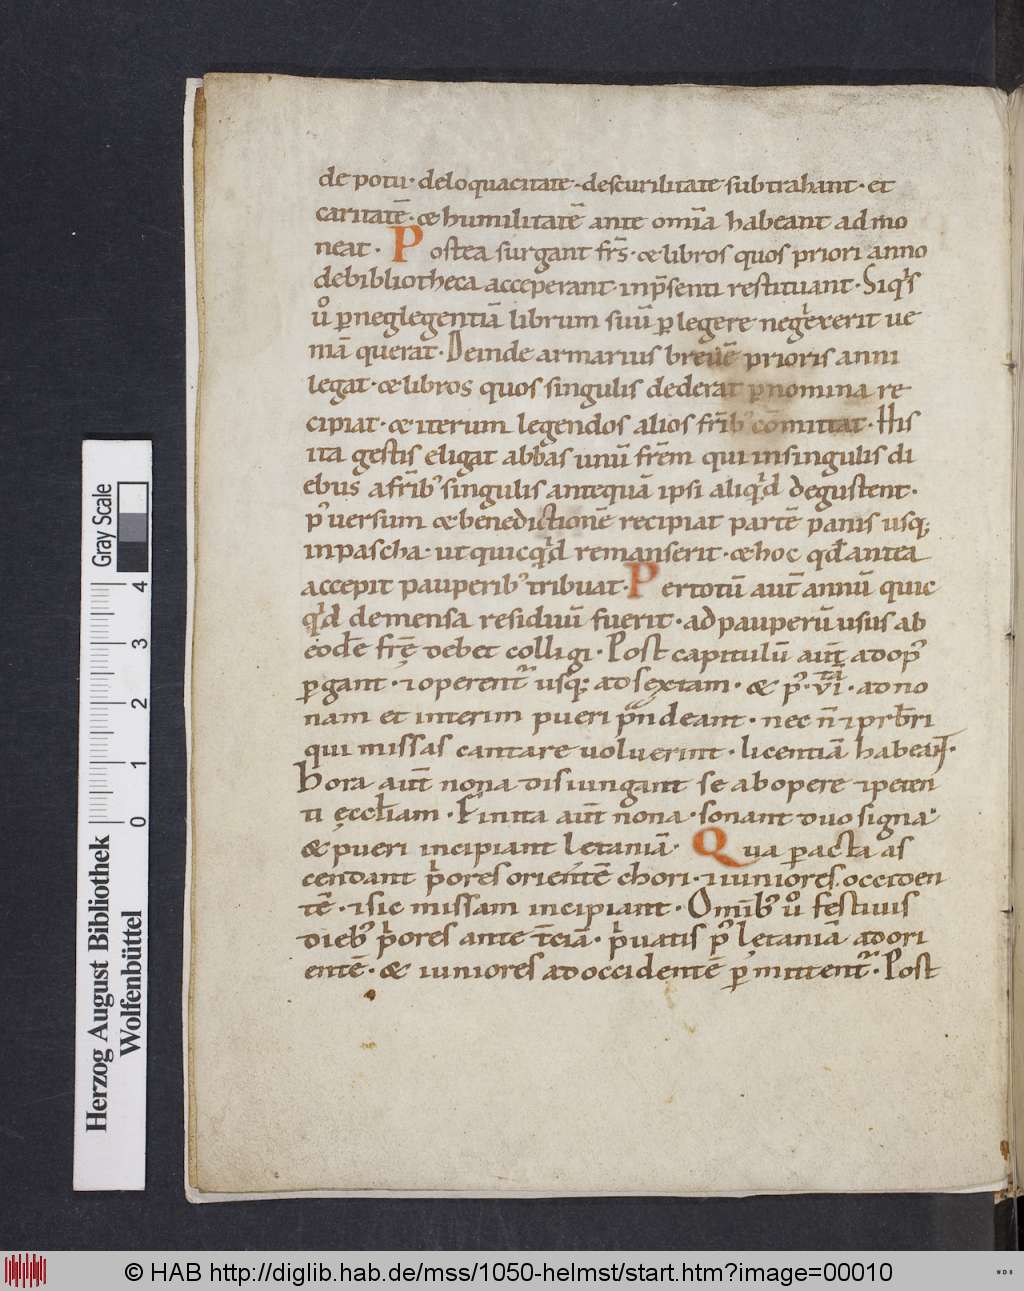 de potu · de loquacitate · de scurilitate subtrahant · et
caritatē · & humilitatē ante om̄ia habeant admo
neat · Postea surgant frs̄ · & libros quos priori anno
de bibliotheca acceperant in p̄senti restituant · Siqͥs
uͦ ꝑ neglegentiā librum suū ꝑlegere neglexerit ue
niā querat · Deinde armarius breuē prioris anni
legat · & libros quos singulis dederat ꝑ nomina re
cipiat · & iterum legendos alios fr̄ib; cōmittat · His
ita gestis eligat abbas unū fr̄em qui in singulis di
ebus a fr̄ib; singulis antequā ipsi aliqͥd degustent ·
p᾽ uersum & benedictionē recipiat partē panis usq;
in pascha · ut quicqͥd remanserit · & hoc qd̄ antea
accepit pauperib; tribuat · Per totū aut̄ annū quic
qͥd de mensa residuū fuerit · ad pauperū usus ab
eodē fr̄e debet colligi · Post capitulū aut̄ ad op᾽
ꝑgant · ⁊ operent᾽ usq; ad sextam · & p᾽ · vi · ad no
nam et interim pueri p̄ndeant · nec n̄ ⁊ prb̄ri
qui missas cantare uoluerint · licentiā habeant ·
Hora aut̄ nona disiungant se ab opere ⁊ peten
ti ęccl̄iam · Finita aut̄ nona · sonant duo signa ·
& pueri incipiant letaniā · Qua ꝑacta as
cendant p̄ores orientē chori · ⁊ iuniores occiden
tē · ⁊ sic missam incipiant · Omib; uͦ festiuis
dieb; pͥores ante t̄ciā · pͥuatis p᾽ letaniā ad ori
entē · & iuniores ad occidentē ꝑmittent᾽ · Post
Herzog August Bibliothek
Wolfenbüttel
Gray Scale
0 1 2 3 4
© HAB http://diglib.hab.de/mss/1050-helmst/start.htm?image=00010